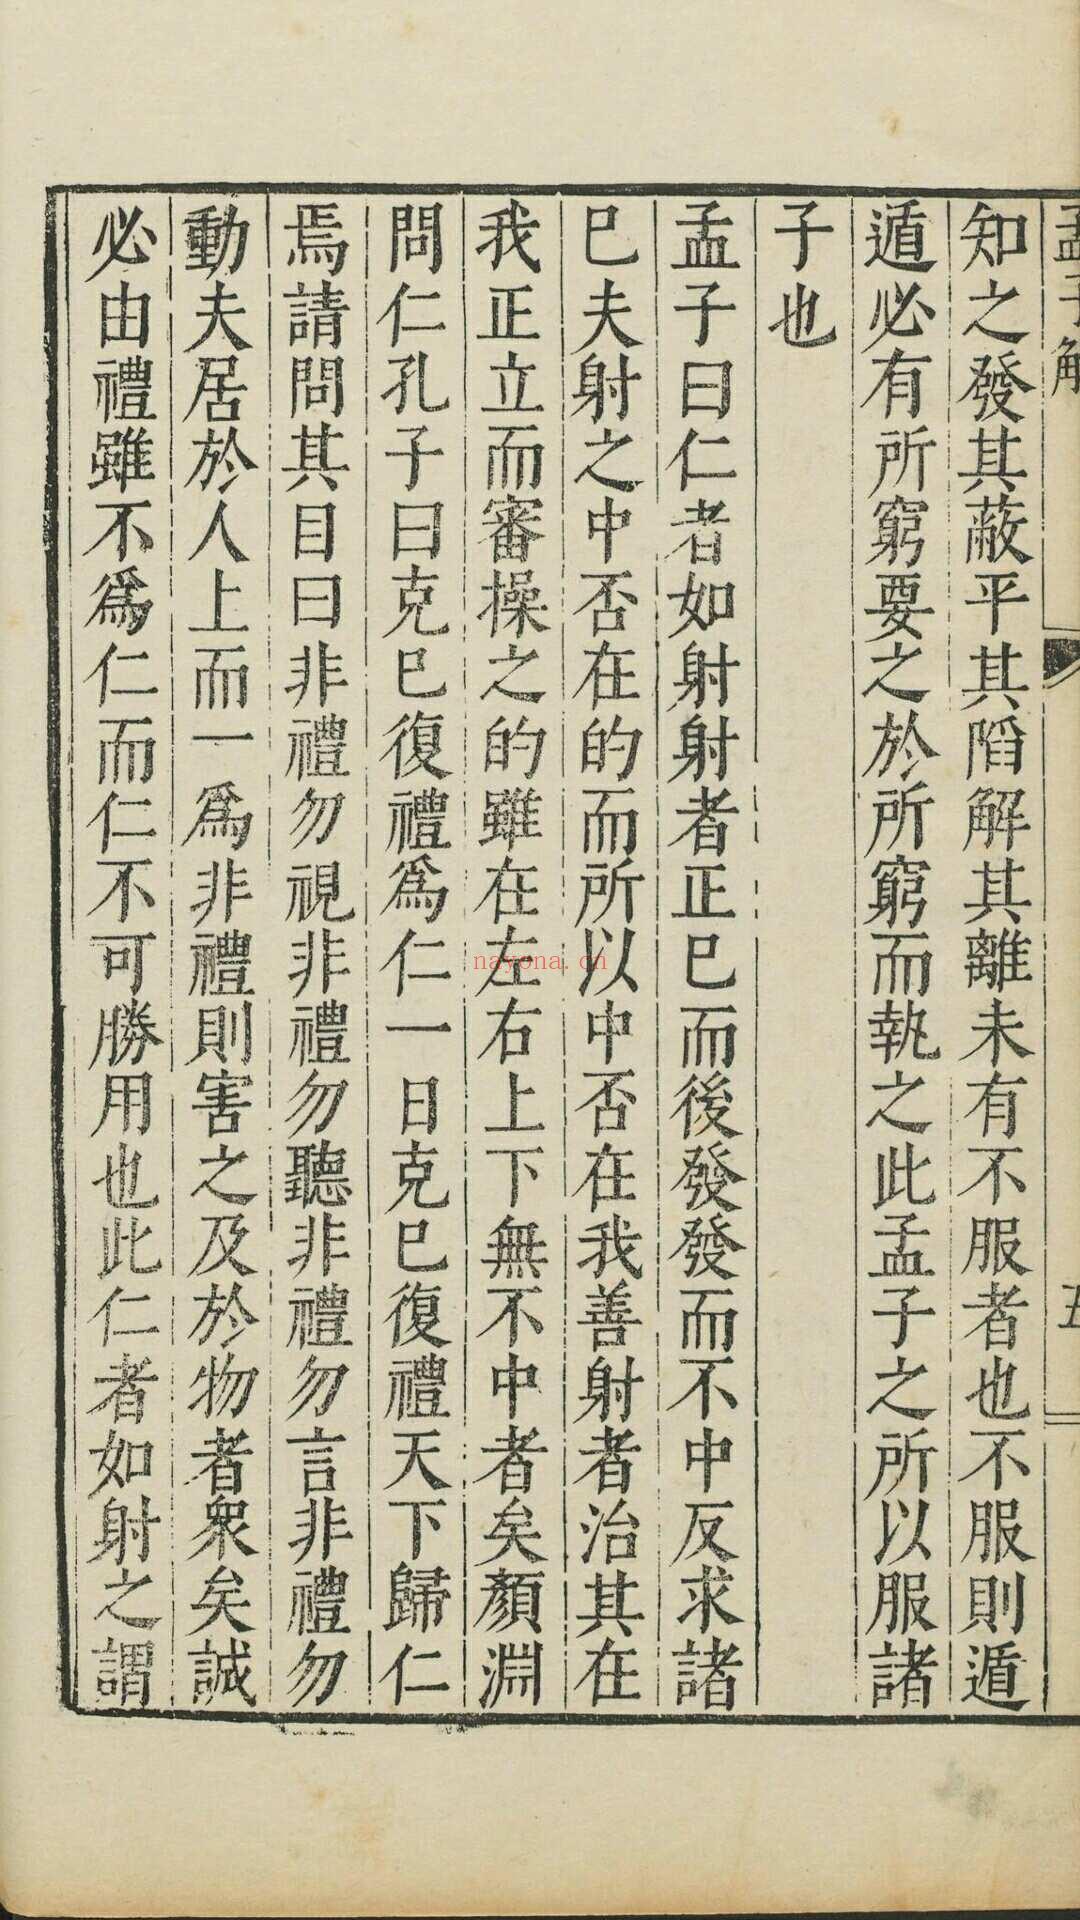 孟子解
五
知之發其蔽平其陷解其離未有不服者也不服則遁
遁必有所窮要之於所窮而執之此孟子之所以服諸
子也
孟子曰仁者如射射者正巳而後發發而不中反求諸
巳夫射之中否在的而所以中否在我善射者治其在
我正立而審操之的雖在左右上下無不中者矣顏淵
問仁孔子曰克巳復禮爲仁一日克巳復禮天下歸仁
焉請問其目曰非禮勿視非禮勿聽非禮勿言非禮勿
動夫居於人上而一爲非禮則害之及於物者衆矣誠
必由禮雖不爲仁而仁不可勝用也此仁者如射之謂
nayona.cn